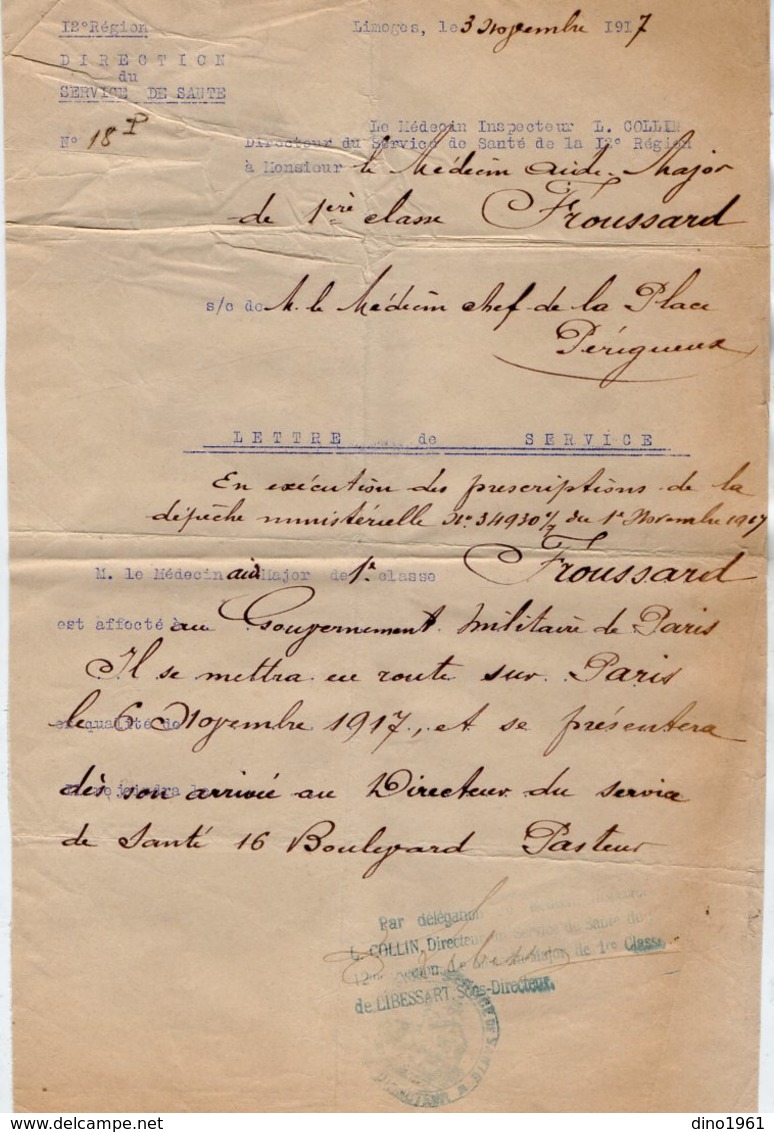 12° Région
Limoges, le 3 Novembre 1917
DIRECTION
du
SERVICE DE SANTE
N° 18 P
Le Médecin Inspecteur L. COLLIN
Directeur du Service de Santé de la 12° Région
à Monsieur le Médecin aide-Major
de 1ère classe Froussard
s/c de M. le Médecin chef de la Place
Périgueux
LETTRE de SERVICE
En exécution des prescriptions de la
dépêche ministérielle N° 34930 c/7 du 1er Novembre 1917
M. le Médecin aide Major de 1e classe Froussard
est affecté à au Gouvernement militaire de Paris
Il se mettra en route sur Paris
en qualité de
le 6 Novembre 1917, et se présentera
dès son arrivée au Directeur du service
de Santé 16 Boulevard Pasteur
Par délégation
L. COLLIN, Directeur du Service de Santé du
12me Région Major de 1re Classe
de LIBESSART, Sous-Directeur.
dino1961